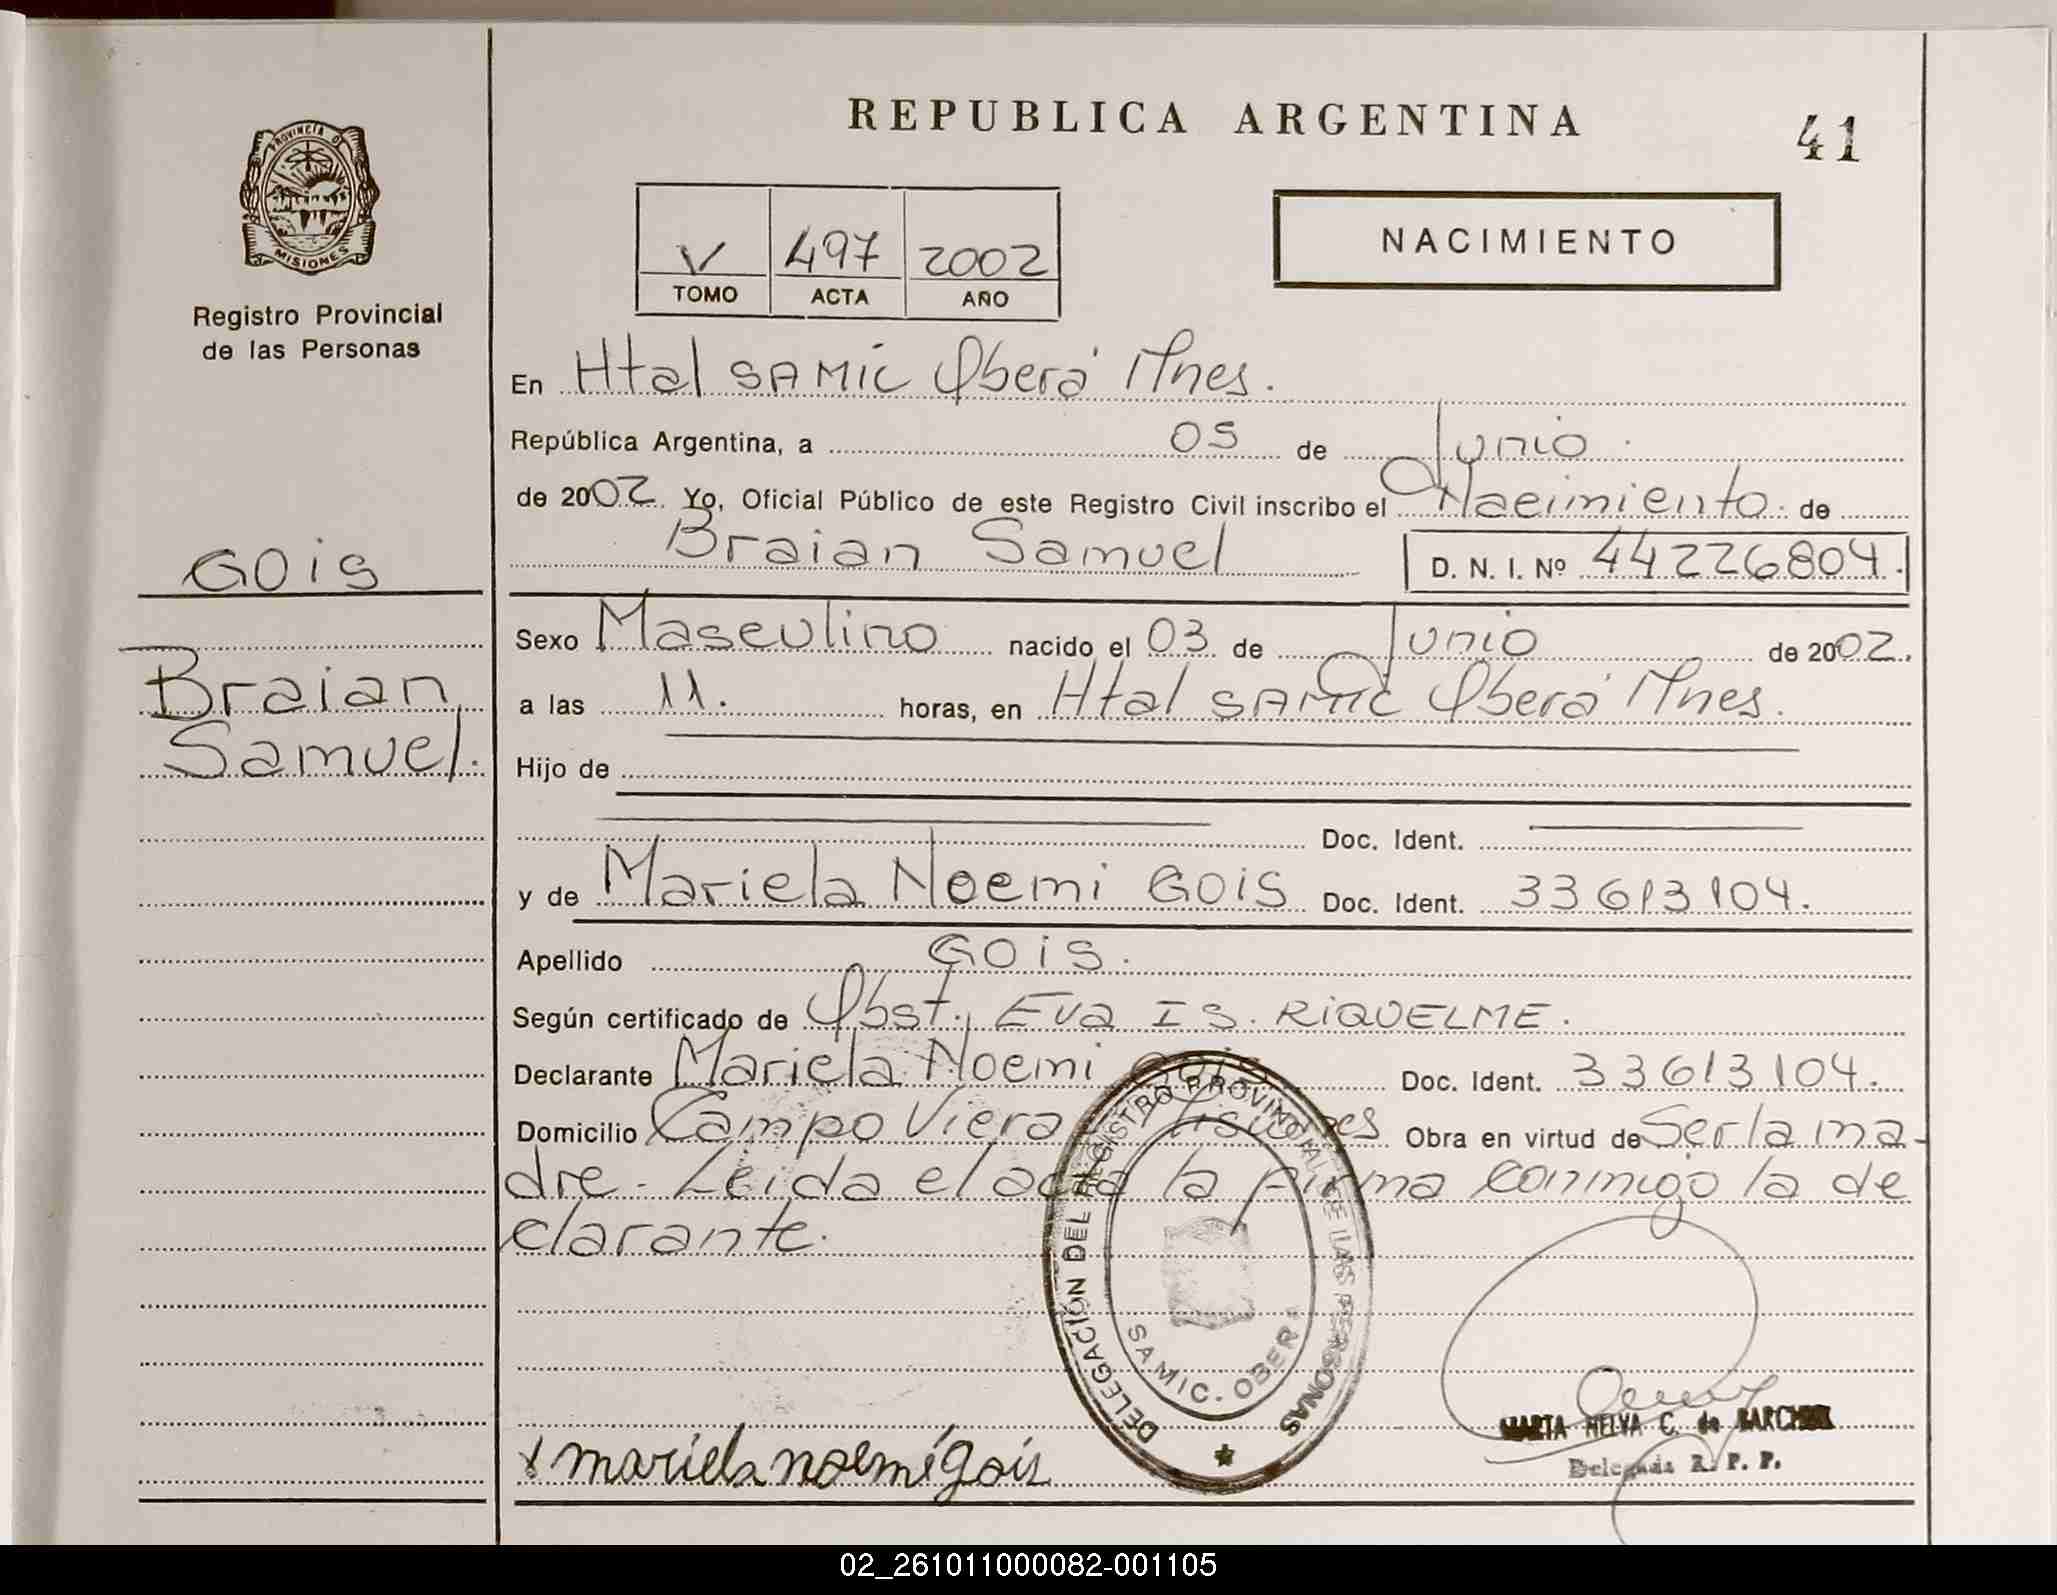 REPUBLICA ARGENTINA
41
PROVINCIA D
MISIONES
Registro Provincial
de las Personas
V 497 2002
TOMO ACTA AÑO
NACIMIENTO
En Htal SAMIC Oberá Mnes.
República Argentina, a 05 de Junio
de 2002 Yo, Oficial Público de este Registro Civil inscribo el Nacimiento de
Braian Samuel D. N. I. Nº 44226804.
GOIS
Braian
Samuel.
Sexo Masculino nacido el 03 de Junio de 2002.
a las 11. horas, en Htal SAMIC Oberá Mnes.
Hijo de
Doc. Ident.
y de Mariela Noemi GOIS Doc. Ident. 33613104.
Apellido GOIS.
Según certificado de Obst. Eva IS. RIQUELME.
Declarante Mariela Noemi Gois Doc. Ident. 33613104.
Domicilio Campo Viera Misiones Obra en virtud de Ser la ma-
dre. Leida el acta la firma conmigo la de
clarante.
DELEGACIÓN DEL REGISTRO PROVINCIAL DE LAS PERSONAS
SAMIC. OBERA
x mariela noemi gois
MARTA HELVA C. de
Delegada R. P. P.
02_261011000082-001105